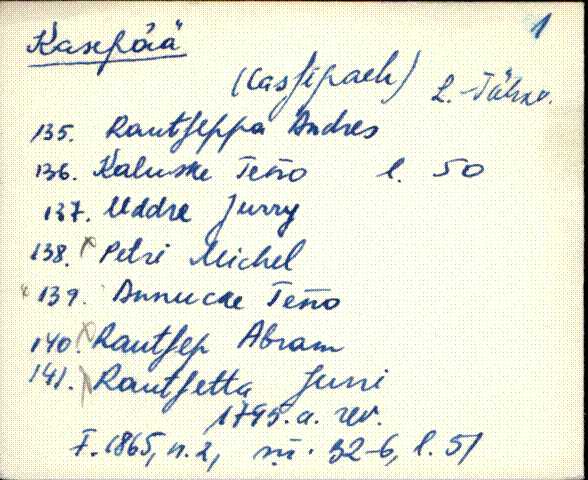 1
Kasepää
(Cassipaeh) L.-Jähav.
135. Rautseppa Andres
136. Kaluske Teño l. 50
137. Uddre Jurry
138. x Petri Michel
x 139. Annucke Teño
140. x Rautsep Abram
141. x Rautsetta Jurri
1795. a. rev.
F. 1865, n. 2, sü. 32-6, l. 51